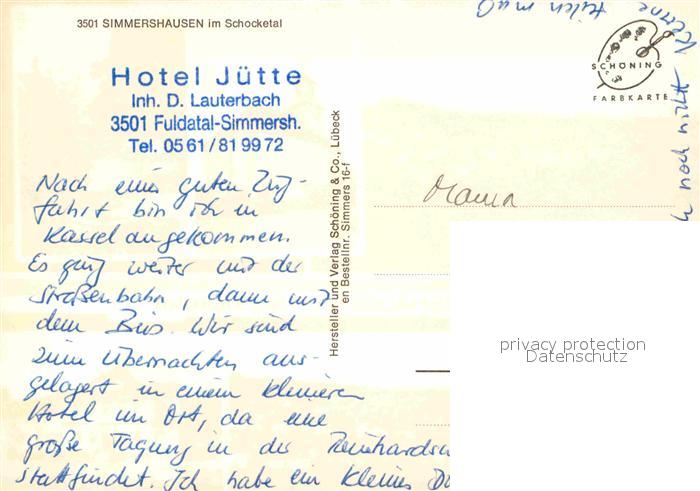 3501 SIMMERSHAUSEN im Schocketal
Hotel Jütte
Inh. D. Lauterbach
3501 Fuldatal-Simmersh.
Tel. 0561/819972
Nach einer guten Zug-
fahrt bin ich in
Kassel angekommen.
Es ging weiter mit der
Straßenbahn, dann mit
dem Bus. Wir sind
zum Übernachten aus-
gelagert in einem kleineren
Hotel im Ort, da eine
große Tagung in der
stattfindet. Ich habe ein kleines
Hersteller und Verlag Schöning & Co., Lübeck
en Bestellnr. Simmers 16-f
SCHÖNING
FARBKARTE
Mama
noch nicht
teilen muß
privacy protection
Datenschutz